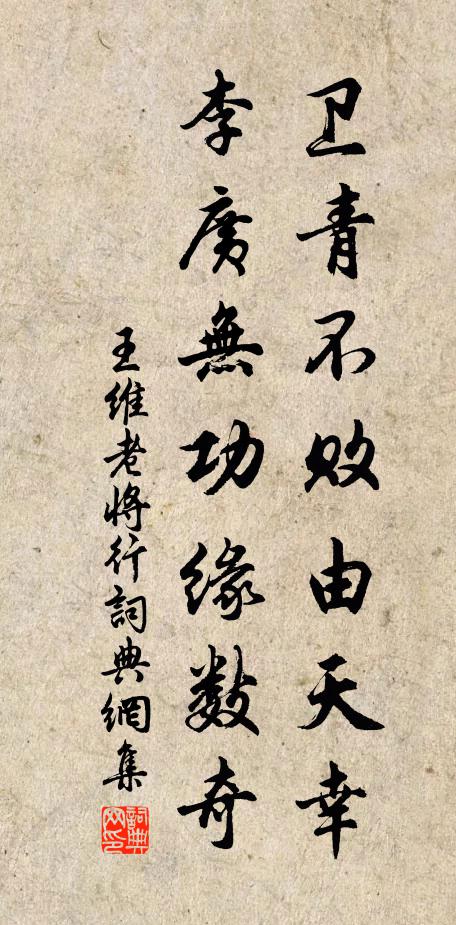 卫青不败由天幸
李廣無功缘数奇
王维老将行詞典網集
詞典网印